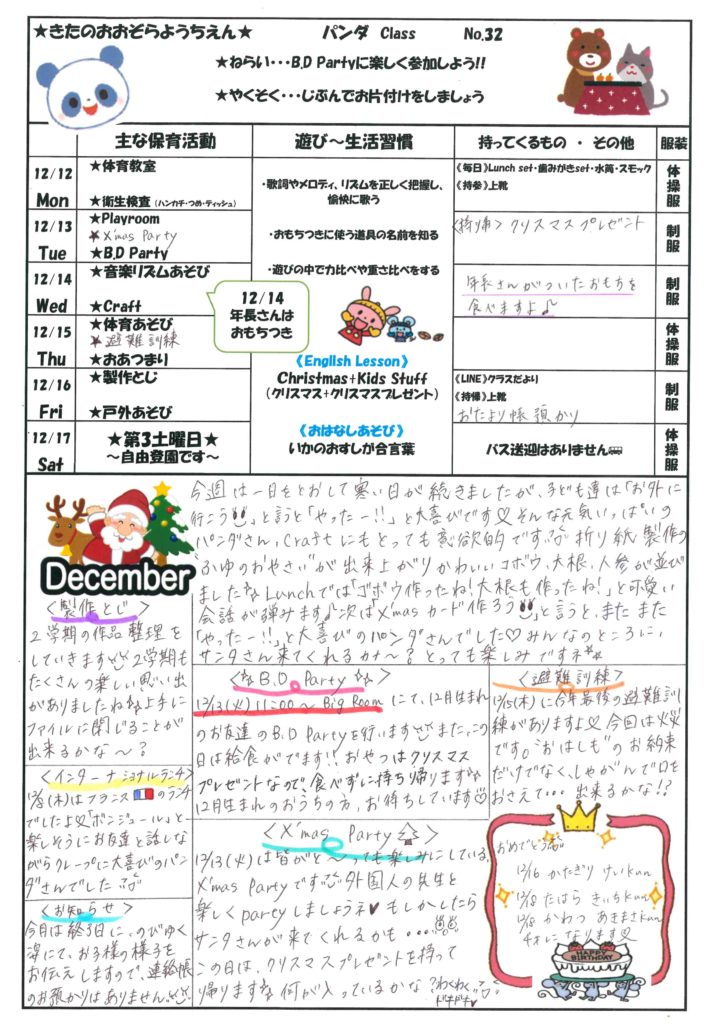 ★きたのおおぞらようちえん★ パンダ Class No.32
★ねらい・・・B.D Partyに楽しく参加しよう!!
★やくそく・・・じぶんでお片付けをしましょう
主な保育活動 遊び～生活習慣 持ってくるもの・その他 服装
12/12 Mon
★体育教室
★衛生検査（ハンカチ・つめ・ティッシュ）
12/13 Tue
★Playroom
★X'mas Party
★B,D Party
12/14 Wed
★音楽リズムあそび
★Craft
12/15 Thu
★体育あそび
★避難訓練
★おあつまり
12/16 Fri
★製作とじ
★戸外あそび
12/17 Sat
★第3土曜日★
～自由登園です～
・歌詞やメロディ、リズムを正しく把握し、
愉快に歌う
・おもちつきに使う道具の名前を知る
・遊びの中で力比べや重さ比べをする
12/14
年長さんは
おもちつき
《English Lesson》
Christmas+Kids Stuff
（クリスマス+クリスマスプレゼント）
《おはなしあそび》
いかのおすしが合言葉
《毎日》Lunch set・歯みがきset・水筒・スモック
《持参》上靴
体操服
〈持ち帰〉クリスマスプレゼント
制服
年長さんがついたおもちを
食べますよ♪
制服
体操服
《LINE》クラスだより
《持帰》上靴
おたより帳預かり
制服
バス送迎はありません
体操服
December
今週は一日をとおして寒い日が続きましたが、子ども達は「お外に
行こう」と言うと「やったー!!」と大喜びです♡そんな元気いっぱいの
パンダさん、Craftにもとっても意欲的です 折り紙製作の
"ふゆのおやさい"が出来上がりかわいいゴボウ、大根、人参が並び
ました Lunchでは「ゴボウ作ったね!大根も作ったね!」と可愛い
会話が弾みます♪次は「X'masカード作ろう」と言うと、またまた
「やったー!!」と大喜びのパンダさんでした♡みんなのところに、
サンタさん来てくれるカナ～?とっても楽しみですネ
〈製作とじ〉
2学期の作品整理を
していきます 2学期も
たくさんの楽しい思い出
がありましたね 上手に
ファイルに閉じることが
出来るかな～?
〈インターナショナルランチ〉
12/8(木)はフランスのランチ
でしたよ「ボンジュール」と
楽しそうにお友達と話しな
がらクループに大喜びのパン
ダさんでした
〈お知らせ〉
今月は終了日に、のびゆく
姿にて、お子様の様子を
お伝えしますので、連絡帳
のお預かりはありません
〈B.D Party〉
12/13(火)11:00～Big Roomにて、12月生まれ
のお友達のB.D Partyを行います また、この
日は給食がでます!!おやつはクリスマス
プレゼントなので、食べずに持ち帰ります
12月生まれのおうちの方、お待ちしています♡
〈X'mas Party〉
12/13(火)は皆がと～っても楽しみにしている、
X'mas Partyです 外国人の先生と
楽しくpartyしましょうネ♥もしかしたら
サンタさんが来てくれるかも・・・・
この日は、クリスマスプレゼントを持って
帰ります 何が入っているかな?わくわく
ドキドキ♥
〈避難訓練〉
12/15(木)に今年最後の避難訓
練がありますよ 今回は火災
です。"おはしも"のお約束
だけでなく、しゃがんで口を
おさえて・・・出来るかな!?
おめでとう
12/16 かたぎり けいくん
12/18 たはら きいちkun
12/18 かわつ あきまさkun
4才になります
HAPPY BIRTHDAY